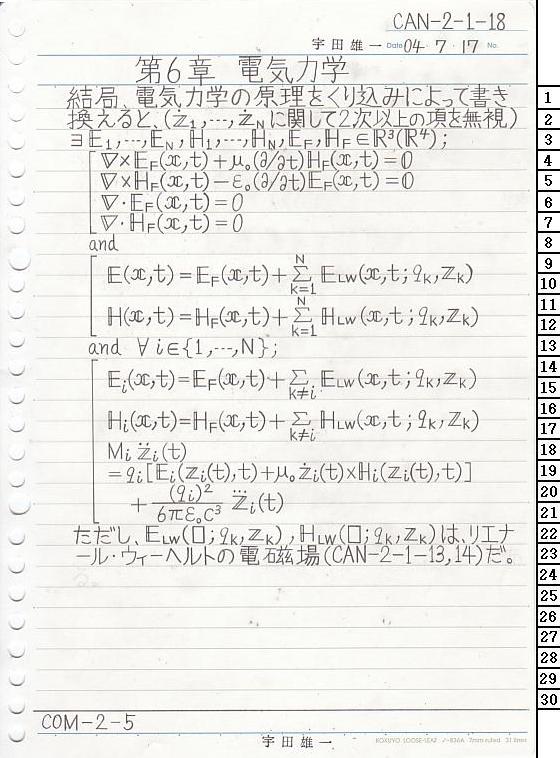 CAN-2-1-18
宇田雄一 Date 04・7・17 No.
第6章 電気力学
結局、電気力学の原理をくり込みによって書き
換えると、(ż₁,---,ż_Nに関して2次以上の項を無視)
∃𝔼₁,---,𝔼_N,ℍ₁,---,ℍ_N,𝔼_F,ℍ_F∈ℝ³(ℝ⁴);
∇×𝔼_F(𝕩,t)+μ₀(∂/∂t)ℍ_F(𝕩,t)=0
∇×ℍ_F(𝕩,t)-ε₀(∂/∂t)𝔼_F(𝕩,t)=0
∇·𝔼_F(𝕩,t)=0
∇·ℍ_F(𝕩,t)=0
and
𝔼(𝕩,t)=𝔼_F(𝕩,t)+Σ_{k=1}^{N} 𝔼_LW(𝕩,t;q_k,𝕫_k)
ℍ(𝕩,t)=ℍ_F(𝕩,t)+Σ_{k=1}^{N} ℍ_LW(𝕩,t;q_k,𝕫_k)
and ∀i∈{1,---,N};
𝔼_i(𝕩,t)=𝔼_F(𝕩,t)+Σ_{k≠i} 𝔼_LW(𝕩,t;q_k,𝕫_k)
ℍ_i(𝕩,t)=ℍ_F(𝕩,t)+Σ_{k≠i} ℍ_LW(𝕩,t;q_k,𝕫_k)
M_i 𝕫̈_i(t)
=q_i[𝔼_i(𝕫_i(t),t)+μ₀𝕫̇_i(t)×ℍ_i(𝕫_i(t),t)]
+(q_i)²/6πε₀c³ 𝕫⃛_i(t)
ただし、𝔼_LW(□;q_k,𝕫_k),ℍ_LW(□;q_k,𝕫_k)は、リエナ
ール・ウィーヘルトの電磁場(CAN-2-1-13,14)だ。
COM-2-5
宇田雄一
KOKUYO LOOSE-LEAF ノ-836A 7mm ruled 31 lines
1
2
3
4
5
6
7
8
9
10
11
12
13
14
15
16
17
18
19
20
21
22
23
24
25
26
27
28
29
30